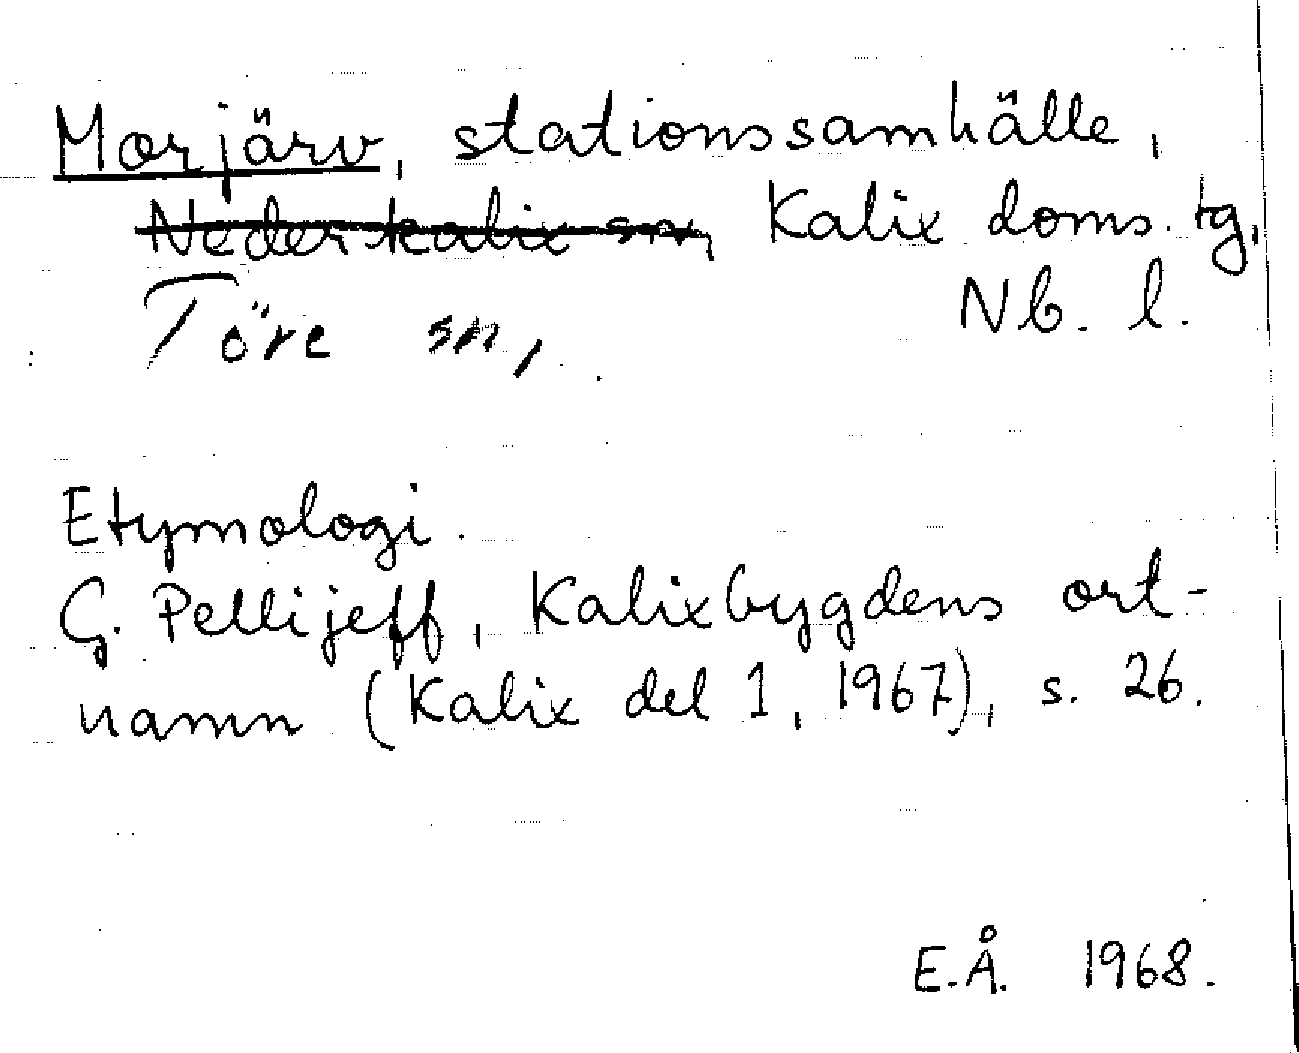 Morjärv, stationssamhälle,
Nederkalix sn, Kalix doms. tg,
Töre sn, Nb. l.
Etymologi.
G. Pellijeff, Kalixbygdens ort-
namn (Kalix del 1, 1967), s. 26.
E.Å. 1968.